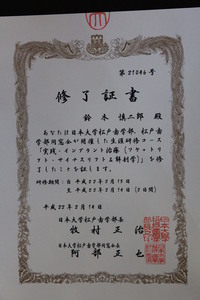 第21046号
修了証書
鈴木慎二郎 殿
あなたは日本大学松戸歯学部、松戸歯
学部同窓会が開催した生涯研修コース
『実践・インプラント治療(ソケットリ
フト・サイナスリフト&解剖学)』を修
了したことを証します。
研修期間:自 平成22年2月13日
至 平成22年2月14日(2日間)
平成22年2月14日
日本大学松戸歯学部長
牧村正治
日本大学松戸歯学部同窓会長
阿部正也